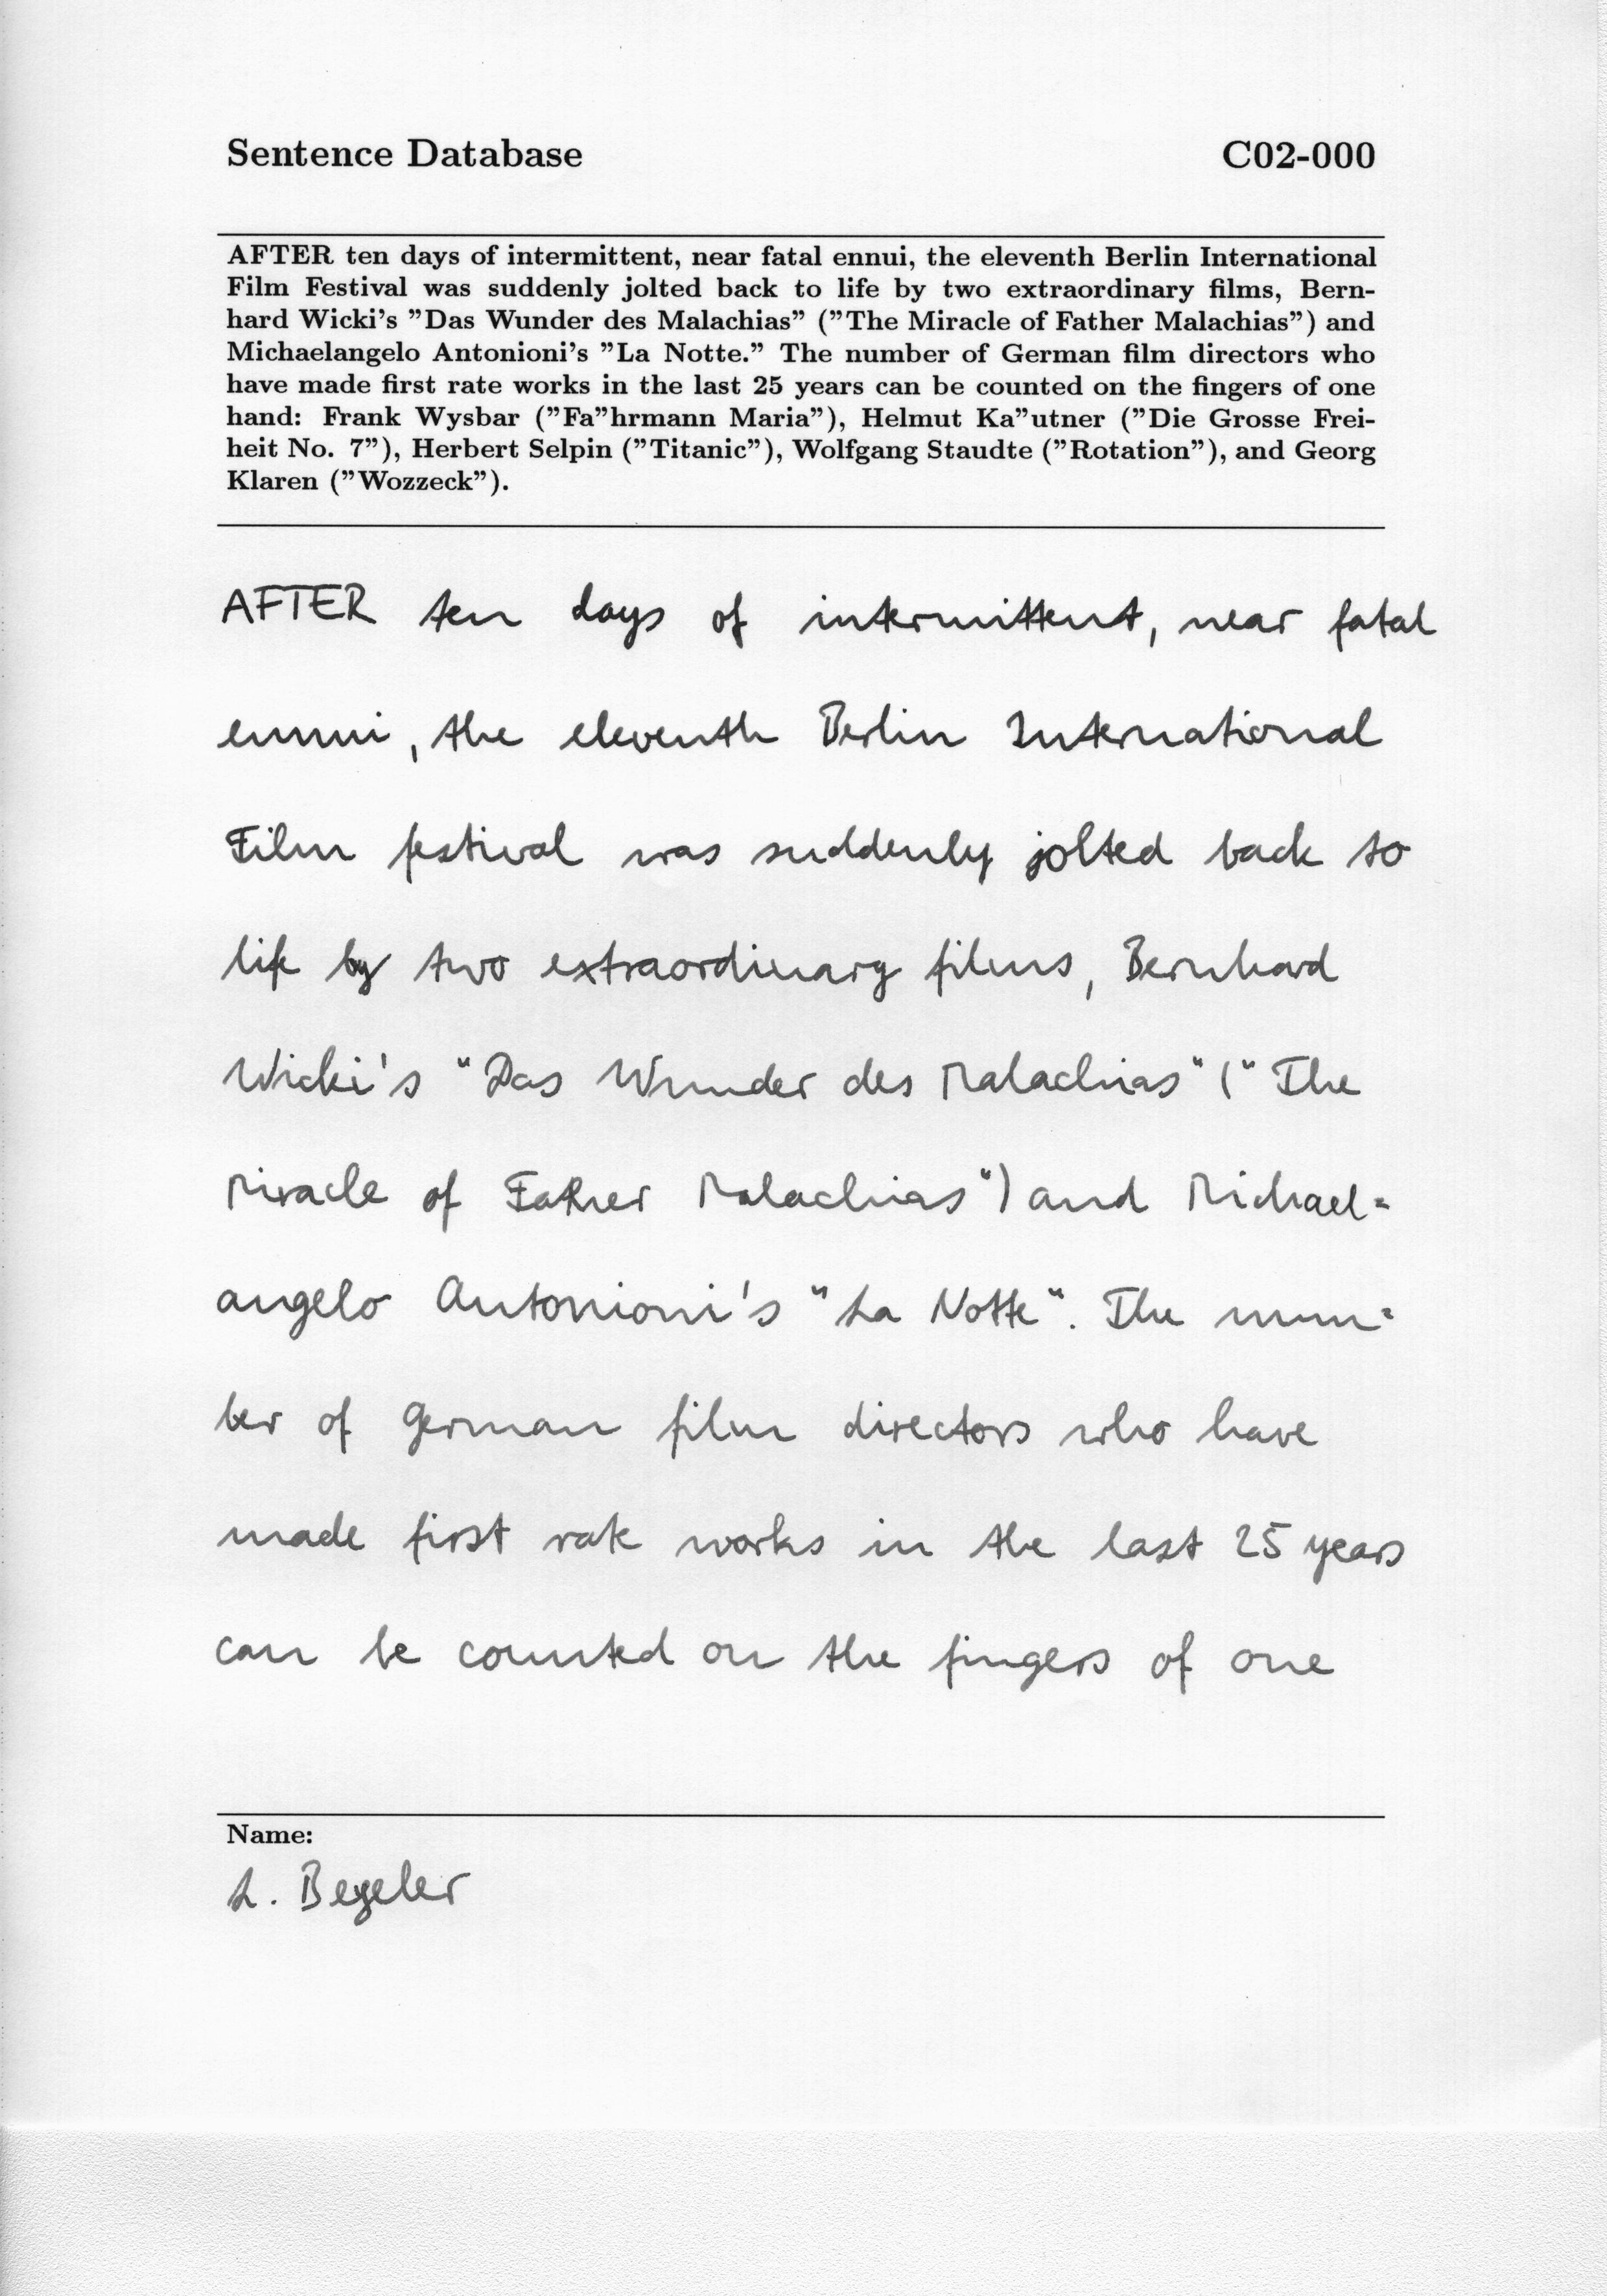 Sentence Database C02-000
AFTER ten days of intermittent, near fatal ennui, the eleventh Berlin International
Film Festival was suddenly jolted back to life by two extraordinary films, Bern-
hard Wicki's "Das Wunder des Malachias" ("The Miracle of Father Malachias") and
Michaelangelo Antonioni's "La Notte." The number of German film directors who
have made first rate works in the last 25 years can be counted on the fingers of one
hand: Frank Wysbar ("Fa"hrmann Maria"), Helmut Ka"utner ("Die Grosse Frei-
heit No. 7"), Herbert Selpin ("Titanic"), Wolfgang Staudte ("Rotation"), and Georg
Klaren ("Wozzeck").
AFTER ten days of intermittent, near fatal
ennui, the eleventh Berlin International
Film festival was suddenly jolted back to
life by two extraordinary films, Bernhard
Wicki's "Das Wunder des Malachias" ("The
Miracle of Father Malachias") and Michael=
angelo Antonioni's "La Notte". The num=
ber of German film directors who have
made first rate works in the last 25 years
can be counted on the fingers of one
Name:
L. Bezeler